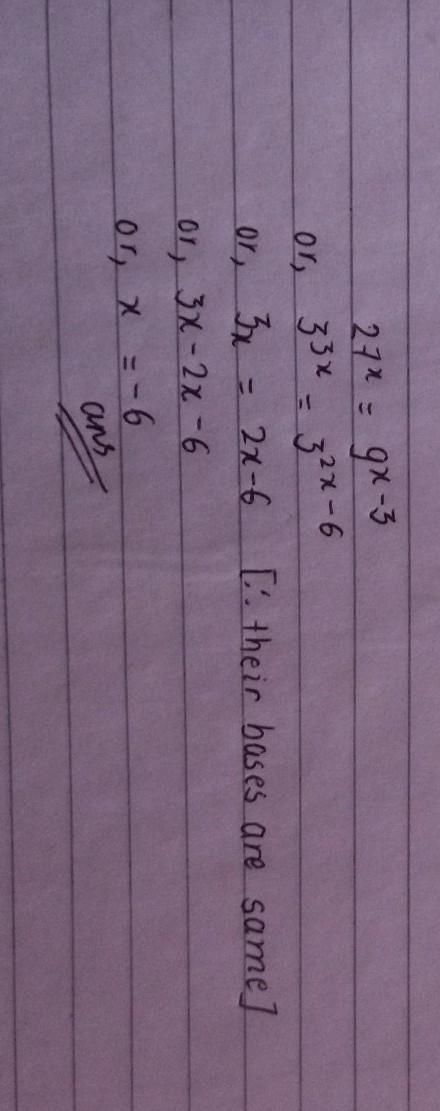 27^x = 9^x-3
or, 3^3x = 3^2x-6
or, 3x = 2x-6 [∴ their bases are same]
or, 3x-2x-6
or, x = -6
ans